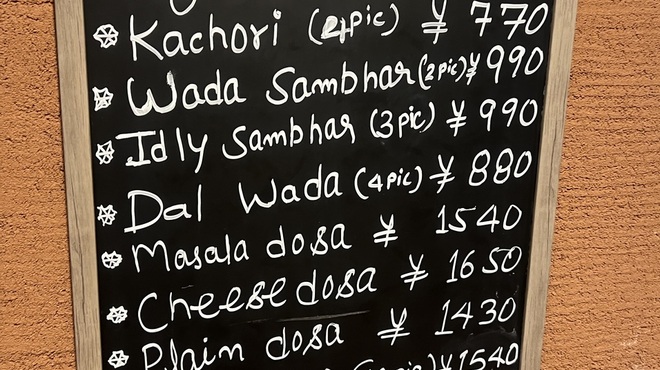 Kachori (4pic) ¥ 770
Wada Sambhar (2pic) ¥ 990
Idly Sambhar (3pic) ¥ 990
Dal Wada (4pic) ¥ 880
Masala dosa ¥ 1540
Cheese dosa ¥ 1650
Plain dosa ¥ 1430
¥1540